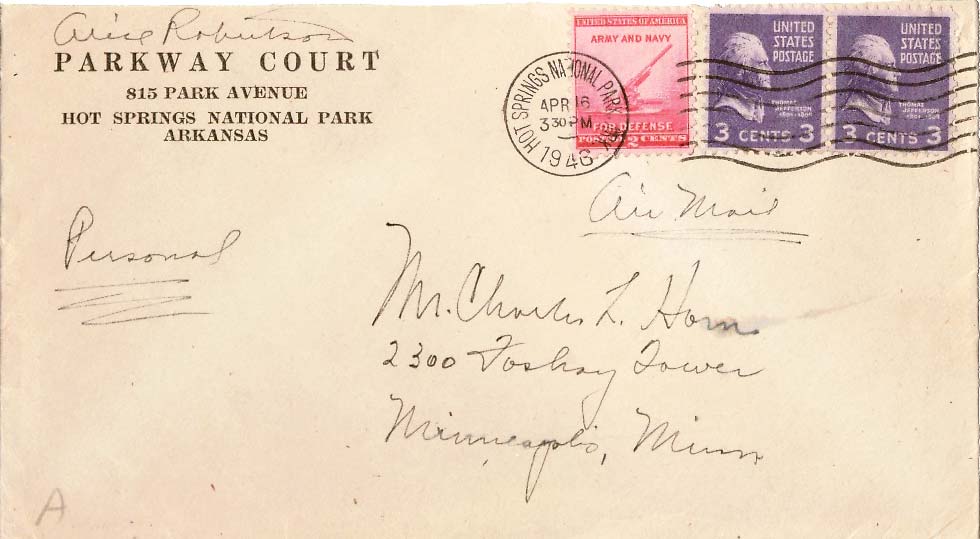 Alice Robertson
PARKWAY COURT
815 PARK AVENUE
HOT SPRINGS NATIONAL PARK
ARKANSAS
HOT SPRINGS NATIONAL PARK, ARK.
APR 16
3 30 PM
1946
UNITED STATES OF AMERICA
ARMY AND NAVY
FOR DEFENSE
POSTAGE 2 CENTS
UNITED
STATES
POSTAGE
THOMAS
JEFFERSON
1801-1809
3 CENTS 3
UNITED
STATES
POSTAGE
THOMAS
JEFFERSON
1801-1809
3 CENTS 3
Air Mail
Personal
Mr. Charles L. Horn
2300 Foshay Tower
Minneapolis, Minn
A